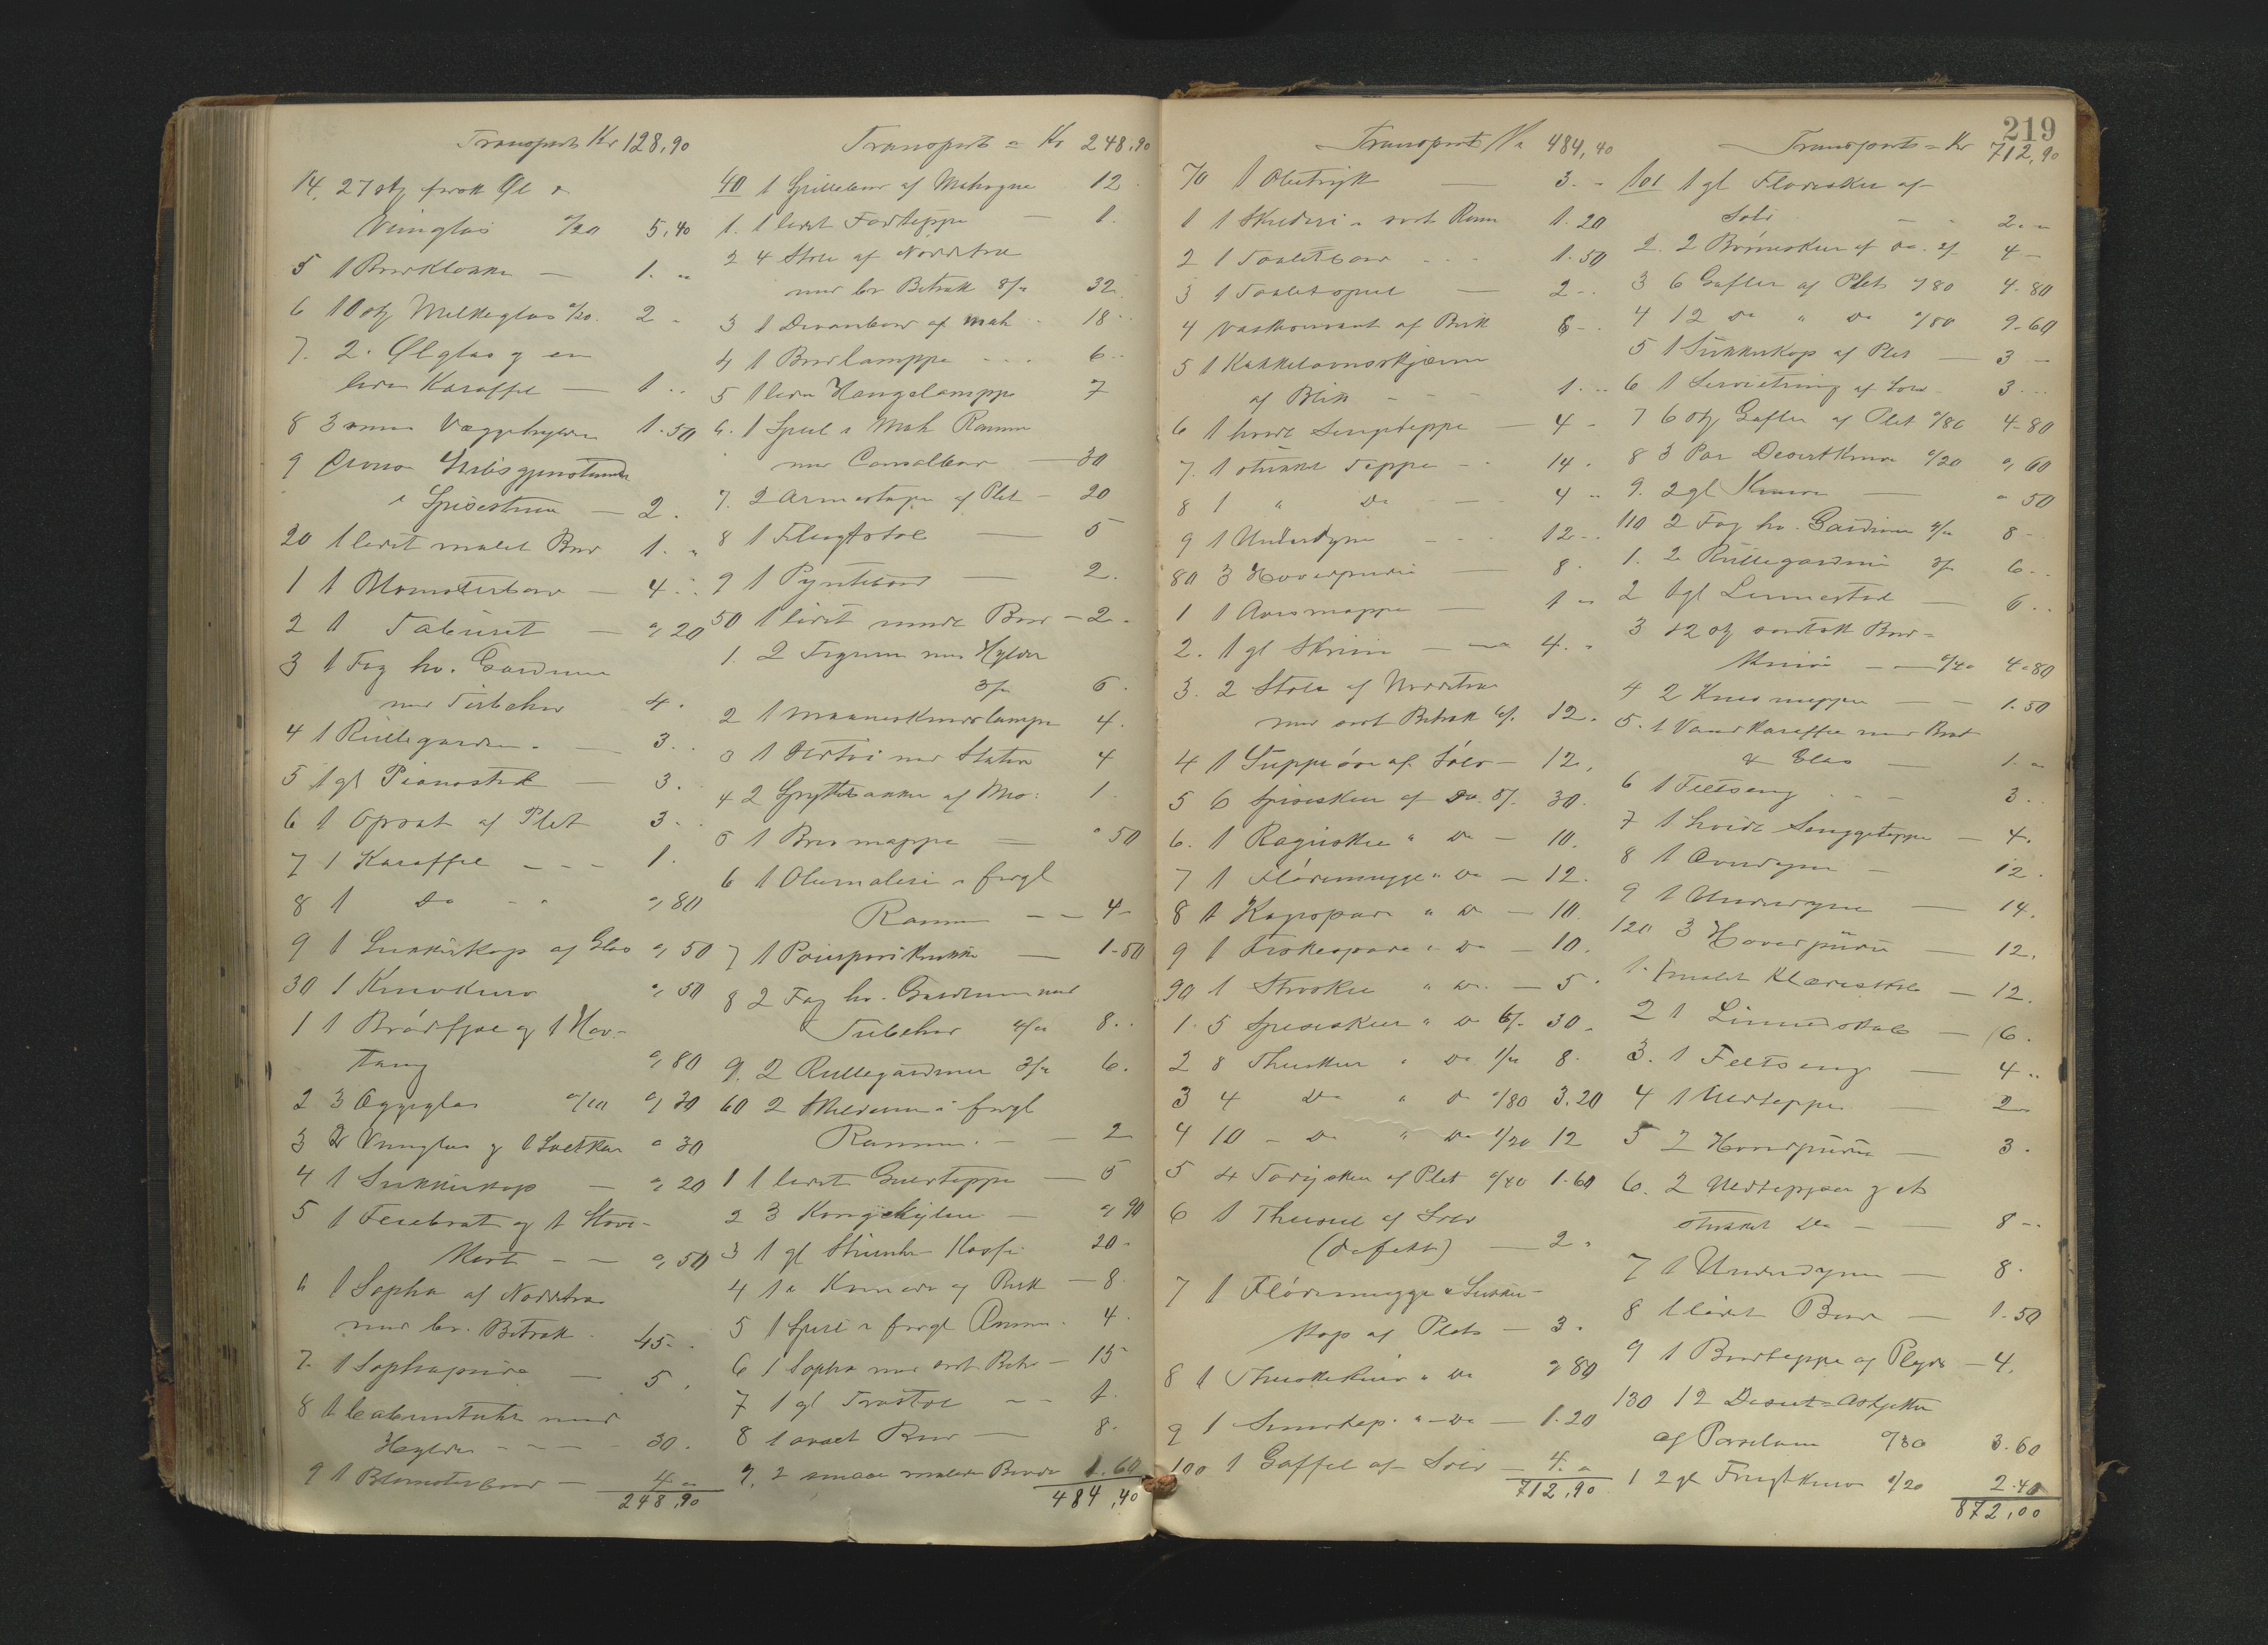 Transport Kr 128,90
14. 27 stk forsk Øl &
Vinglas "/20 5,40
5 1 Bordklokke — 1. "
6 10 stk Melkeglas "/20. 2 "
7. 2 Ølglas og en
liden Karaffel — 1 ..
8 3 smaa Væggehylder 1.50
9 Gjenstande
i Spisestuen — 2.
20 1 lidet malet Bord 1. "
1 1 Blomsterbord — 4 "
2 1 Taburet — ",20
3 1 Fag hv. Gardiner
med Tilbehør 4.
4 1 Rullegardin — 3..
5 1 gl Pianostol — 3.
6 1 Opsats af Plet 3..
7 1 Karaffel — — — 1.
8 1 Do — " ",80
9 1 Sukkerkop af Glas ",50
30 1 Knivkurv ",50
1 1 Brödfjæl og 1
tang ",80
2 3 Æggeglas "/10 ",30
3 2 Vinglas og 1 Saltkar " 30
4 1 Sukkerkop — ",20
5 1 Thebret og 1
— — ",50
6 1 Sopha af Nøddetræ
med br. Betræk. 45..
7. 1 Sophapude — 5.
8 1 med
Hylder — — — 30.
9 1 Blomsterbord — 4 "
248,90
Transport " Kr 248,90
40 1 Spillebord af Mahogni 12.
1. 1 lidet Fodteppe — 1.
2 4 Stole af Nøddetræ
med br Betræk 8/" 32.
3 1 Divanbord af Mah — 18..
4 1 Bordlamppe — — 6..
5 1 liden Hængelamppe 7
6. 1 Speil i Mah Ramme
med Consolbord — 30
7. 2 Armestager af Plet — 20
8 1 Flugtstol — 5
9 1 Pyntebord — 2.
50 1 lidet rundt Bord — 2 "
1. 2 Figurer med Hylder
3/" 6.
2 1 4.
3 1 med Stativ 4
4 2 Spyttebakker af 1.
5 1 Brevmappe — " 50
6 1 Oliemaleri i forgl
Ramme — — 4 "
7 1 — 1.50
8 2 Fag hv. Gardiner med
Tilbehør 4/" 8..
9. 2 Rullegardiner 3/" 6.
60 2 Malerier i forgl
Ramme. — — 2
1 1 lidet Gulvteppe — 5
2 3 — ",90
3 1 gl 20 "
4 1 " Komode af Birk — 8
5 1 Speil i forgl Ramme. 4.
6 1 Sopha med sort Betr — 15
7 1 gl Træstol — — 1.
8 1 ovalt Bord — 8.
9. 2 smaae malede Borde 1.60
484,40
Transport Kr 484,40
70 1 Olietryk — 3. "
1 1 Skilderi i sort Ramme 1.20
2 1 Toiletbord — — — 1.50
3 1 Toiletspeil — 2 ..
4 Vaskeservant af Birk 6 ..
5 1 Kakkelovnsskjærm
af Blik — — — 1. "
6 1 hvidt Sengeteppe — 4 "
7. 1 stukket Teppe — 14.
8 1 " Do — 4 "
9 1 Underdyne — — — 12 ..
80 3 Hovedpuder — 8.
1 1 Avismappe — 1 "
2. 1 gl Skrin — — 4. "
3. 2 Stole af Nøddetræ
med sort Betræk 6/". 12.
4 1 Suppeöse af Sölv — 12,
5 6 Spiseskeer af Do. 5/". 30.
6. 1 Raguskee " Do — 10.
7 1 Flödemugge " Do — 12.
8 1 Kagespade " Do — 10.
9 1 Fiskespade " Do — 10.
90 1 Ströskee " Do. — 5.
1. 5 Spiseskeer " Do 6/". 30 "
2 8 Theskeer " Do 1/" 8.
3 4 Do " Do "/80 3.20
4 10 — Do " Do 1/20 12
5 4 af Plet "/40 1.60
6 1 af Sölv
(defekt) — 2 "
7 1 Flödemugge & Sukker-
kop af Plet — 3.
8 1 " Do ",80
9 1 " Do — 1.20
100 1 Gaffel af Sölv — 4. "
712,90
219
Transport " Kr 712,90
101 1 gl Flödeskee af
Sölv — " 2 " "
2. 2 Börneskeer af Do. 2/" 4 —
3 6 Gafler af Plet "/80 4.80
4 12 Do " Do "/80 9.60
5 1 Sukkerkop af Plet — 3 —
6 1 Servietring af Sölv — 3 ..
7 6 stk Gafler af Plet "/80 4.80
8 3 Par Desertknive "/20 ", 60
9. 2 gl Knive — " 50
110 2 Fag hv. Gardiner 4/" 8 —
1. 2 Rullegardiner 3/" 6 ..
2 1 gl — 6 ..
3 12 stk Bord-
knive — — "/40 4.80
4 2 — — 1.50
5. 1 Vandkaraffel med Bret
& Glas — 1. "
6 1 Feltseng . — 3.
7 1 hvidt Senggeteppe — 4.
8 1 Overdyne — 12.
9 1 Underdyne — 14.
120 3 Hovedpuder — 12.
1. 1 malet Klædeskab — 12.
2 1 Linnedskab — 6.
3. 1 Feltseng — 4 ..
4 1 Uldteppe — 2
5 2 Hovedpuder — 3.
6. 2 Uldtepper og et
stukket Do — — 8 ..
7 1 Underdyne — 8.
8 1 lidet Bord — 1.50
9 1 Bordteppe af Plyds — 4.
130 12 Desert-Asjetter
af Porcelain "/30 3.60
1 2 gl Frugtkurve 1/20 2.40
872,00